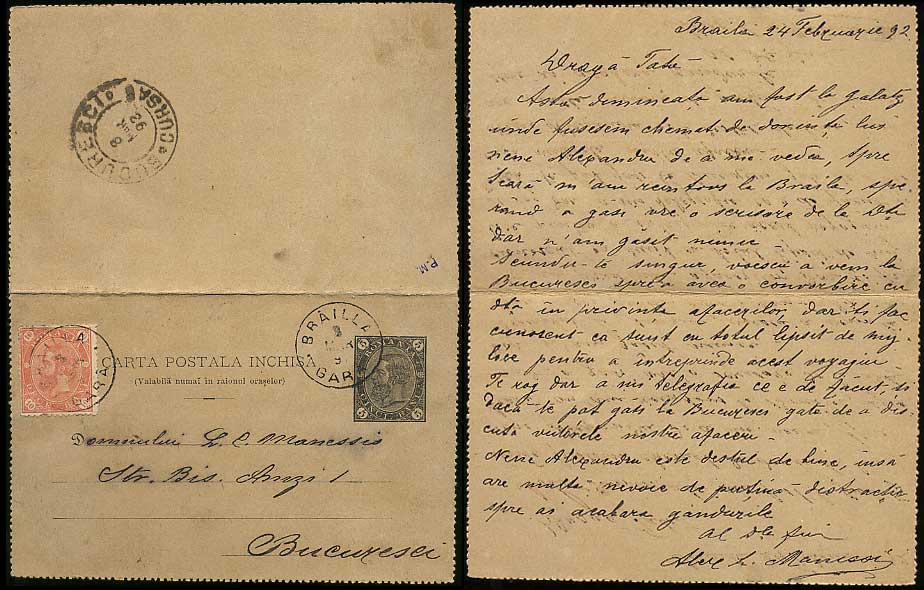 BUCURESCI
CURSA 8
8 MAR 92
P.M.
BRAILA
GARA
CARTA POSTALA INCHISA
(Valabilă numaĭ in raionul orașelor)
BRAILLA
GARA
ROMANIA
5 5
CINCI BANI
5 5
10 10
Domnului L. C. Manessis
Str. Bis. Amzi 1
Bucuresci
Braila 24 Februarie 92
Dragă Tată
Astă dimineață am fost la Galatz
unde fusesem chemat de dorința lui
nene Alexandru de a mă vedea, spre
seară m'am reintors la Braila, spe-
rand a gasi vre'o scrisóre de la Dta
dar n'am gasit nimic
te singur, voesci a veni la
Bucuresci spre a avea o convorbire cu
dta in privinta afacerilor, dar iti fac
cunoscut ca sunt cu totul lipsit de mij-
lóce pentru a intreprinde acest voyagiu
Te rog dar a mi telegrafia ce e de facut, si
daca te pot gasi la Bucuresci gata de a dis-
cuta viitorele nostre afaceri
Nene Alexandru este destul de bine, insă
are multa nevoie de putină distractie
spre as gandurile
al dtă fiu
Alex L. Manessi